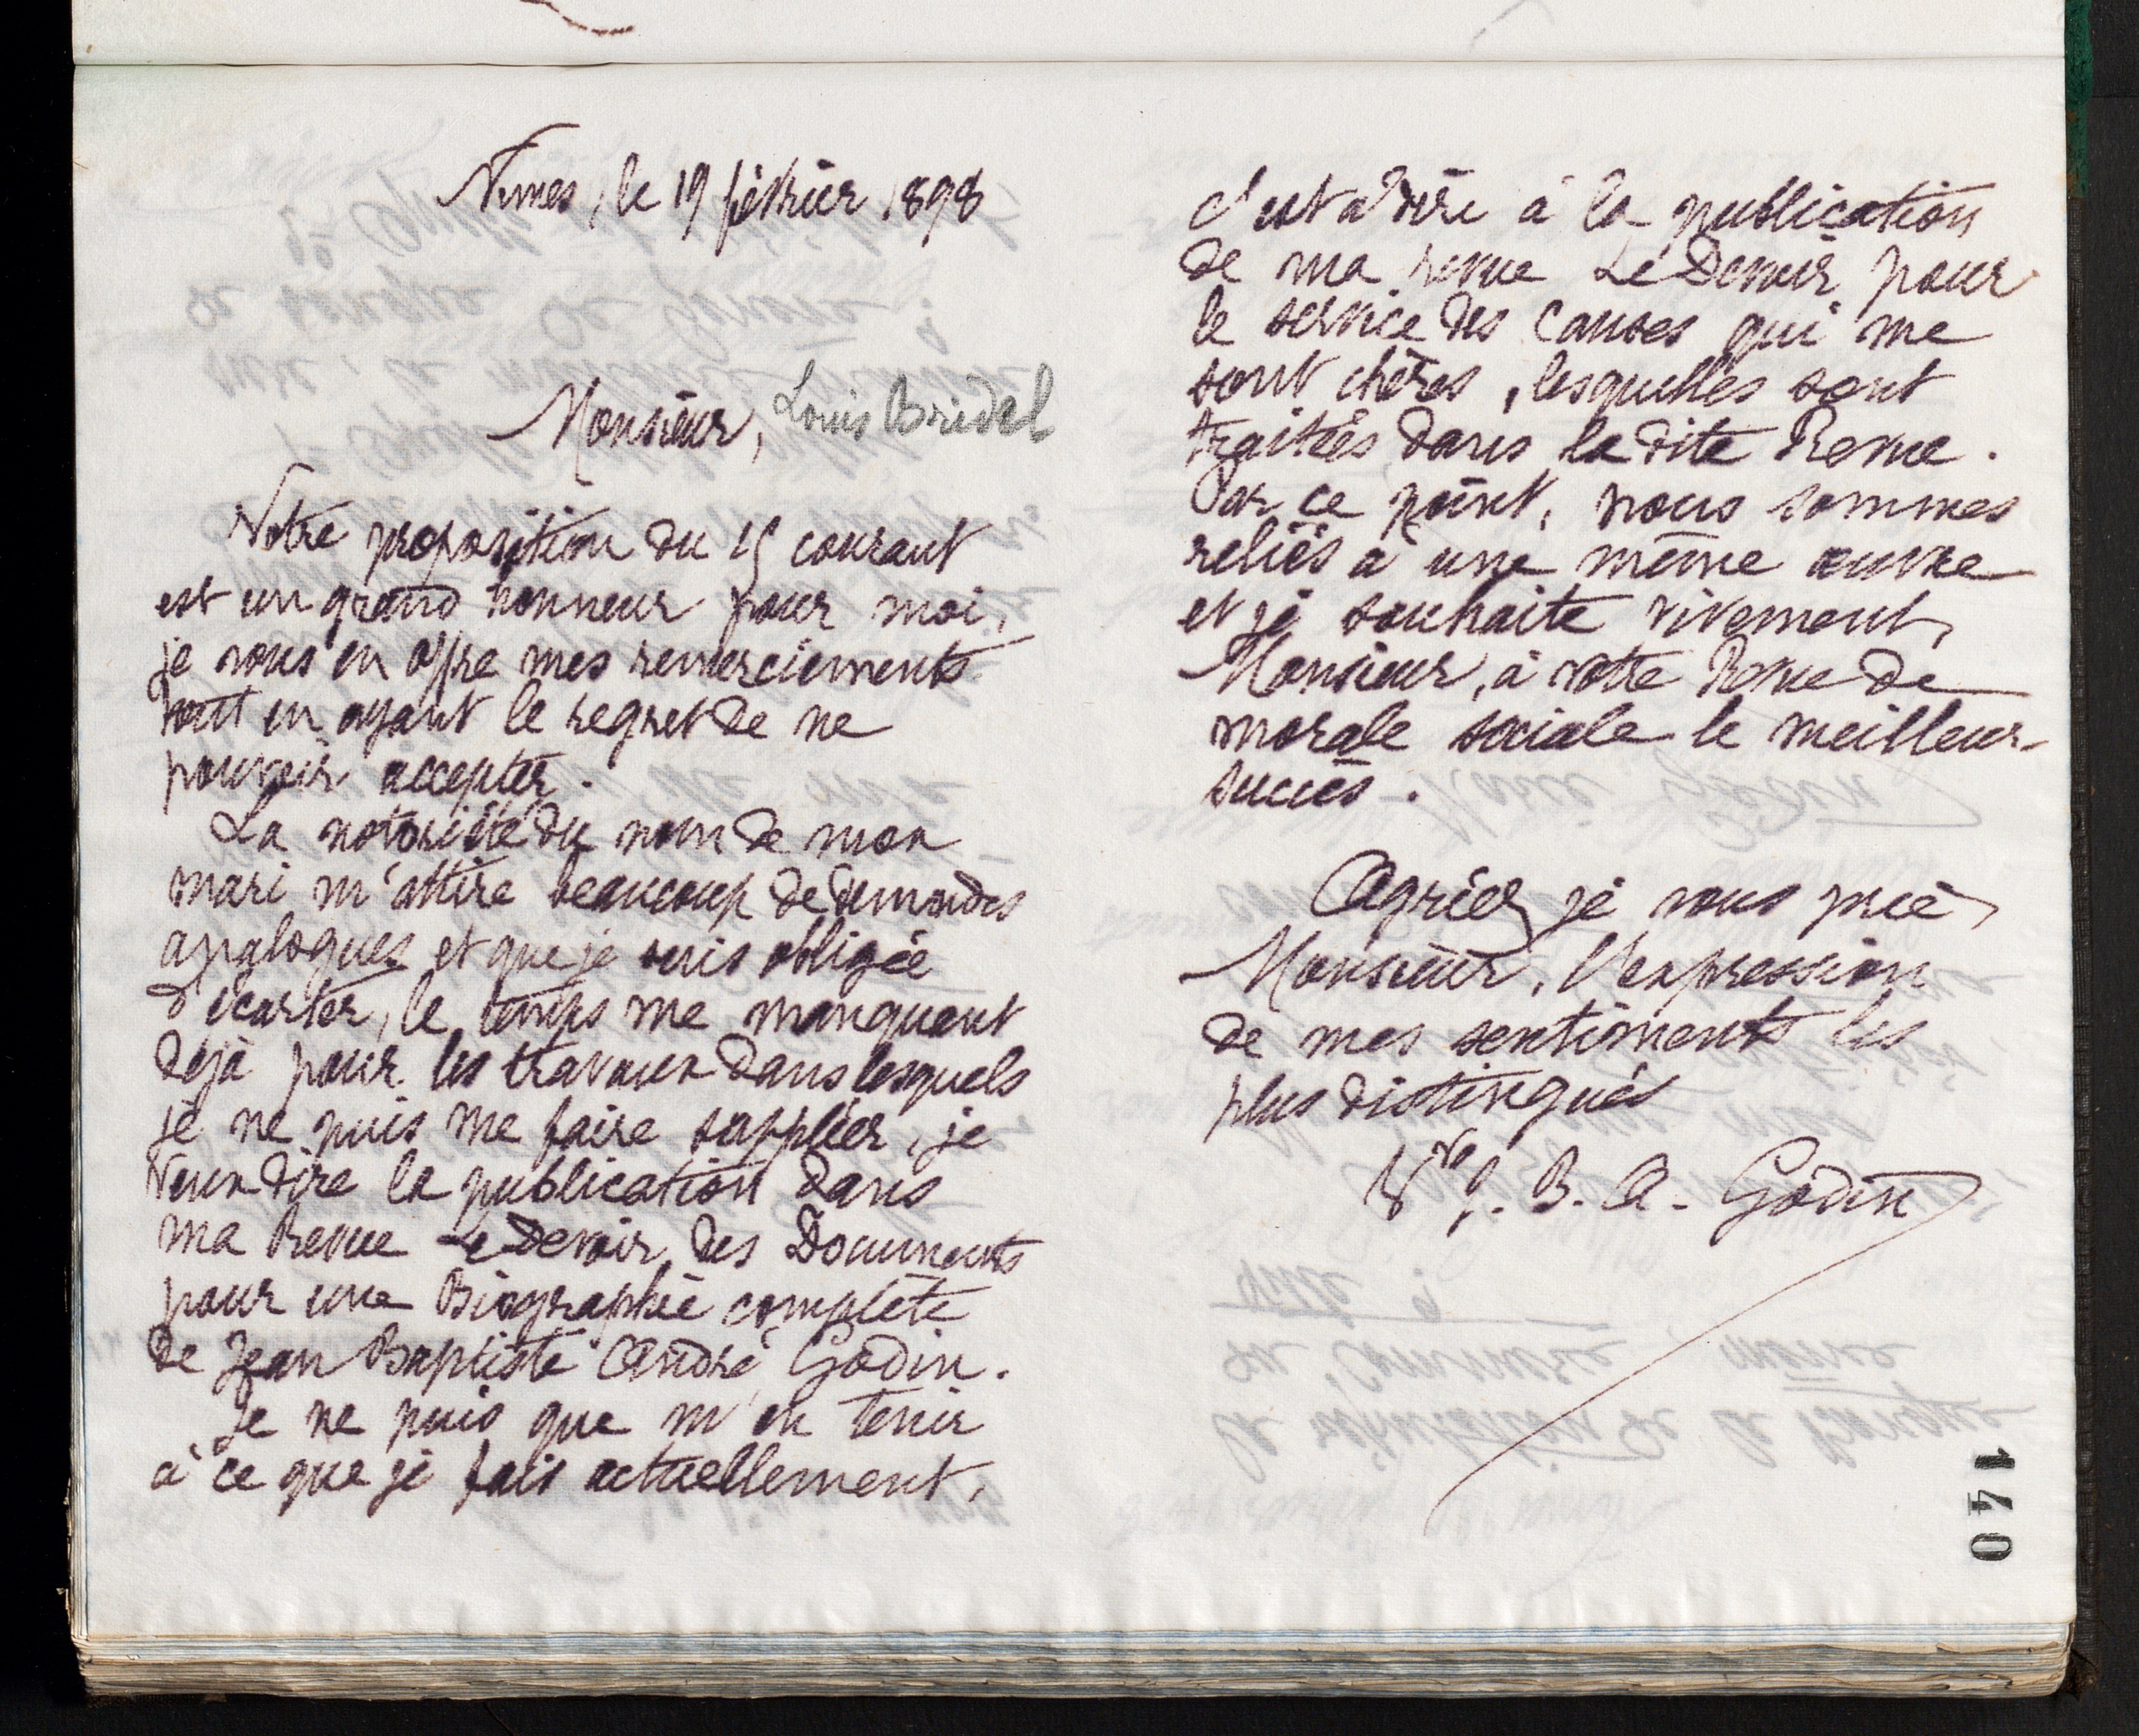 Nimes, le 19 février 1898
Monsieur, Louis Bridel
Votre proposition du 15 courant
est un grand honneur pour moi,
je vous en offre mes remerciements
tout en ayant le regret de ne
pouvoir accepter.
La notoriété du nom de mon
mari m'attire beaucoup de demandes
analogues et que je suis obligée
d'écarter, le temps me manquant
déjà pour les travaux dans lesquels
je ne puis me faire suppléer, je
veux dire la publication dans
ma Revue Le Devoir des Documents
pour une Biographie complète
de Jean Baptiste André Godin.
Je ne puis que m'en tenir
à ce que je fais actuellement,
c'est à dire à la publication
de ma revue Le Devoir pour
le service des causes qui me
sont chères, lesquelles sont
traitées dans la dite Revue.
Par ce point, nous sommes
reliés à une même œuvre
et je souhaite vivement,
Monsieur, à votre Revue de
morale sociale le meilleur
succès.
Agréez je vous prie,
Monsieur, l'expression
de mes sentiments les
plus distingués
Vve J. B. A. Godin
140